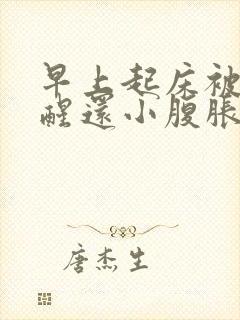 早上起床被
醒还小腹胀
唐杰生